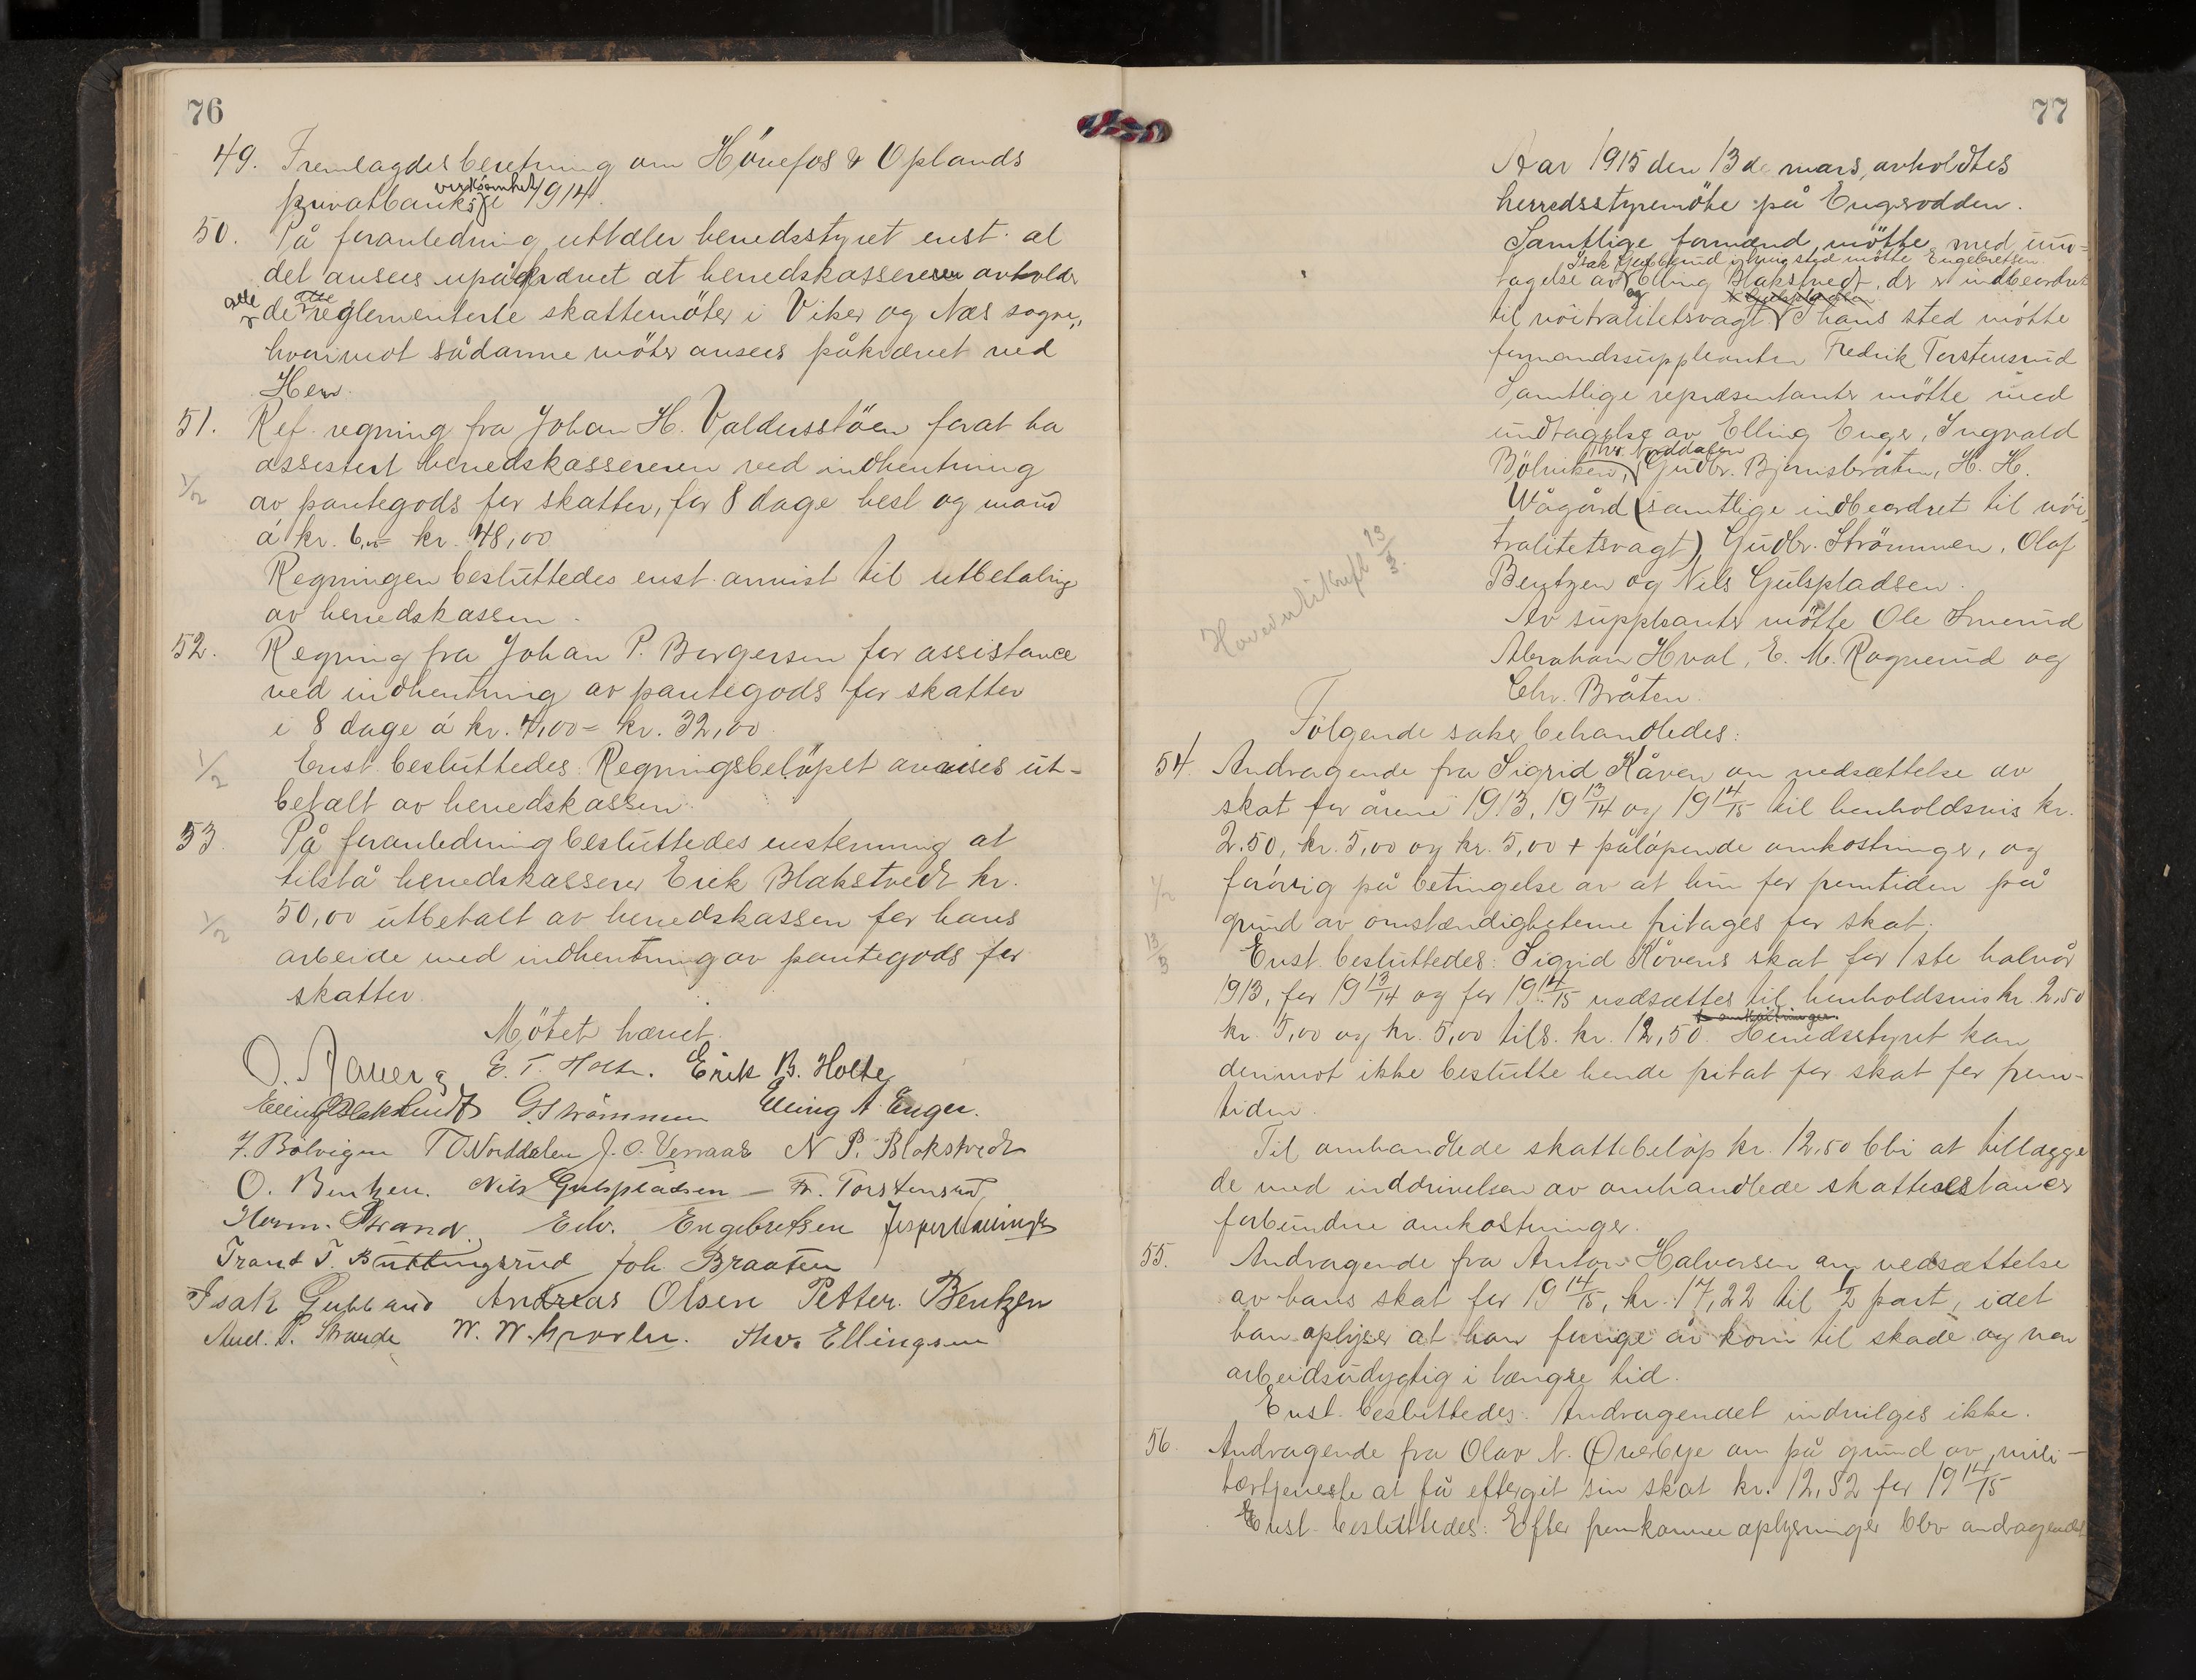 76
49. Fremlagdes beretning om Hönefos & Oplands
virksomhet
privatbanks i 1914.
50. På foranledning uttaler herredsstyret enst. at
det ansees upåkrævet at herredskassereren avholder
alle de reglementerte skattemöter i Viker og Nes sogne,
hvorimot sådanne möter ansees påkrævet ved
Hen.
51. Ref. regning fra Johan H. Valdersstöen forat ha
assistert herredskassereren ved indhentning
1/2 av pantegods for skatter, for 8 dage hest og mand
á kr. 6,00 = kr. 48,00
Regningen besluttedes enst. anvist til utbetaling
av herredskassen.
52. Regning fra Johan P. Borgersen for assistance
ved indhentning av pantegods for skatter
i 8 dage á kr. 4,00 = kr. 32,00
1/2 Enst. besluttedes: Regningsbelöpet anvises ut-
betalt av herredskassen.
53. På foranledning besluttedes enstemmig at
tilstå herredskasserer Erik Blakstvedt kr.
1/2 50,00 utbetalt av herredskassen for hans
arbeide med indhentning av pantegods for
skatter.
Mötet hævet.
O. Aaberg E. T. Holte. Erik B. Holte
Elling Blakstvedt G. Strömmen Elling A. Enger.
I. Bölvigen T O Norddalen J. O. Veraas N P. Blakstvedt
O. Bentzen. Nils Gulspladsen — Fr. Torstensrud
Herm. Strand. Edv. Engebretsen Jesper
Trand T. Buttingsrud Joh. Braaten
Isak Gubberud Andreas Olsen Petter. Bentzen
And. P. Strande W. W. Thv. Ellingsen
77
Aar 1915 den 13de mars, avholdtes
herredsstyremöte på Engerodden.
Samtlige formænd mötte med und-
Isak Gubberud i hvis sted mötte Engebretsen
tagelse av Elling Blakstvedt, der er indbeordret
og
til nöitralitetsvagt. I hans sted mötte
formandssuppleanten Fredrik Torstensrud
Samtlige repræsentanter mötte med
undtagelse av Elling Enger, Ingvald
Thv. Norddalen
Bölviken, Gudbr. Bjørnsbråten, H. H.
Wågård (samtlige indbeordret til nöi-
tralitetsvagt), Gudbr. Strömmen, Olaf
Bentzen og Nils Gulspladsen.
13/3.
Av suppleanter mötte Ole Smerud
Abraham Hval, E. M. Rognerud og
Chr. Bråten.
Følgende saker behandledes:
54. Andragende fra Sigrid Kåven om nedsættelse av
skat for årene 1913, 19 13/14 og 19 14/15 til henholdsvis kr.
2.50, kr. 5,00 og kr. 5,00 + påløpende omkostninger, og
1/2 forövrig på betingelse av at hun for fremtiden på
grund av omstændigheterne fritages for skat.
13/3 Enst. besluttedes: Sigrid Kåvens skat for 1ste halvår
1913, for 19 13/14 og for 19 14/15 nedsættes til henholdsvis kr. 2,50
+ omkostninger
kr. 5,00 og kr. 5,00 tils. kr. 12,50. Herredsstyret kan
derimot ikke beslutte hende fritat for skat for frem-
tiden.
Til omhandlede skattebelöp kr. 12,50 blir at tillægge
de med inddrivelsen av omhandlede skatterestancer
forbundne omkostninger.
55. Andragende fra Anton Halvorsen om nedsættelse
av hans skat for 19 14/15, kr. 17,22 til 1/2 part, idet
han oplyser at han forrige år kom til skade og var
arbeidsudygtig i længre tid.
Enst. besluttedes: Andragendet indvilges ikke.
56. Andragende fra Olav N. Øverbye om på grund av mili-
tærtjeneste at få eftergit sin skat kr. 12,52 for 19 14/15
Enst. besluttedes: Efter fremkomne oplysninger blev andragendet